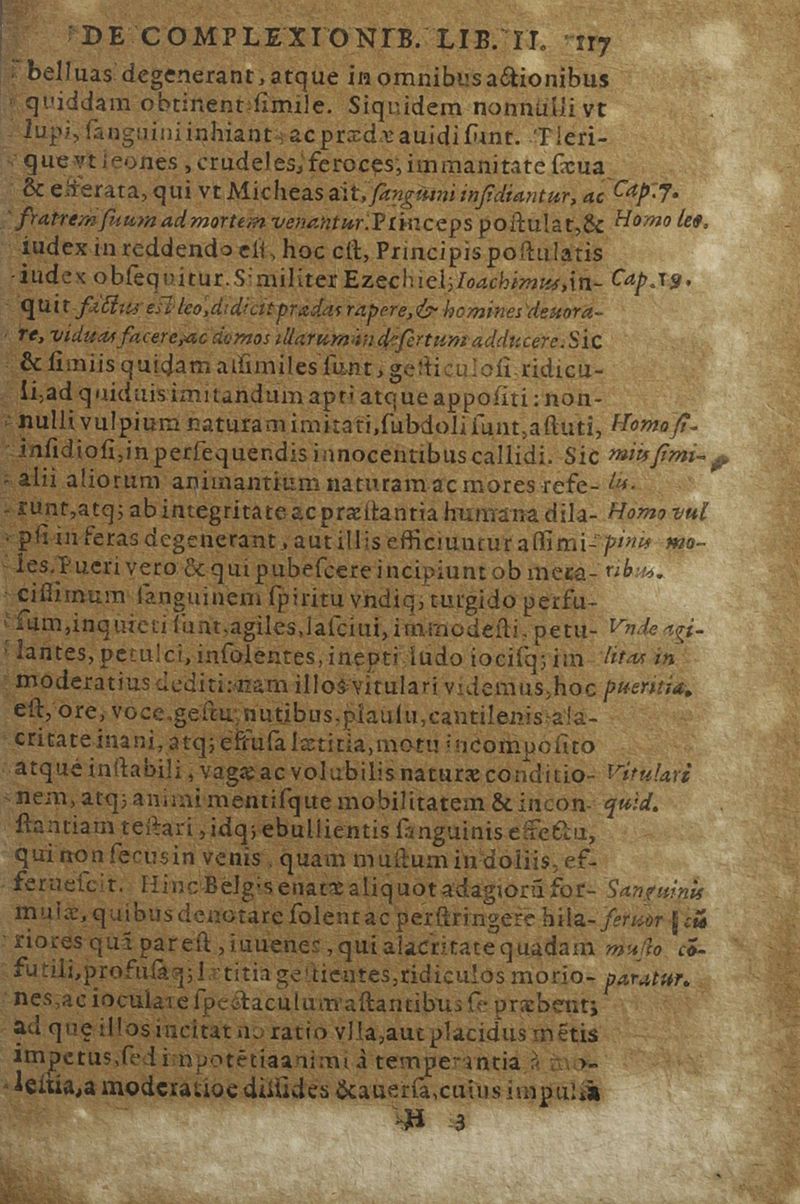 DE COMPLEXIONIB. LIB. II. 117
belluas degenerant, atque in omnibus actionibus
quiddam obtinent simile. Siquidem nonnulli vt
lupi, sanguini inhiant, ac prædæ auidi sunt. Pleri-
que vt leones, crudeles, feroces, immanitate sæua
& efferata, qui vt Micheas ait, sanguini insidiantur, ac Cap. 7.
fratrem suum ad mortem venantur. Princeps postulat, & Homo leo.
iudex in reddendo est, hoc est, Principis postulatis
iudex obsequitur. Similiter Ezechiel, Ioachimus, in- Cap. 19.
quit factus est leo, didicit prædas rapere, & homines deuora-
re, viduas facere, ac domos illarum in desertum adducere. Sic
& simiis quidam assimiles sunt, gesticulosi ridicu-
li, ad quiduis imitandum apti atque appositi: non-
nulli vulpium naturam imitati, subdoli sunt, astuti, Homo si-
insidiosi, in persequendis innocentibus callidi. Sic miis simi-
alii aliorum animantium naturam ac mores refe- lis.
runt, atq; ab integritate ac præstantia humana dila- Homo vul
psi in feras degenerant, aut illis efficiuntur assimi- pinis mo-
les. Pueri vero & qui pubescere incipiunt ob mera- ribus.
cissimum sanguinem spiritu vndiq; turgido perfu-
sum, inquieti sunt, agiles, lasciui, immodesti, petu- Vnde agi-
lantes, petulci, insolentes, inepti, ludo iocisq; im litas in
moderatius dediti: nam illos vitulari videmus, hoc pueritia.
est, ore, voce, gestu, nutibus, plausu, cantilenis, ala-
critate inani, atq; effusa lætitia, motu incomposito
atque instabili, vagæ ac volubilis naturæ conditio- Vitulari
nem, atq; animi mentisque mobilitatem & incon- quid.
stantiam testari, idq; ebullientis sanguinis effectu,
qui non secus in venis, quam mustum in doliis, ef-
feruescit. Hinc Belgis enatæ aliquot adagiorũ for- Sanguinis
mulæ, quibus denotare solent ac perstringere hila- feruor cũ
riores quã par est, iuuenes, qui alacritate quadam musto cõ-
futili, profusaq; lætitia gestientes, ridiculos morio- paratur.
nes, ac ioculare spectaculum astantibus se præbent;
ad quę illos incitat no ratio vlla, aut placidus mẽtis
impetus, sed impotẽtia animi à temperantia à mo-
lestia, a moderatioe dissides & auersa, cuius impulsu
H 3